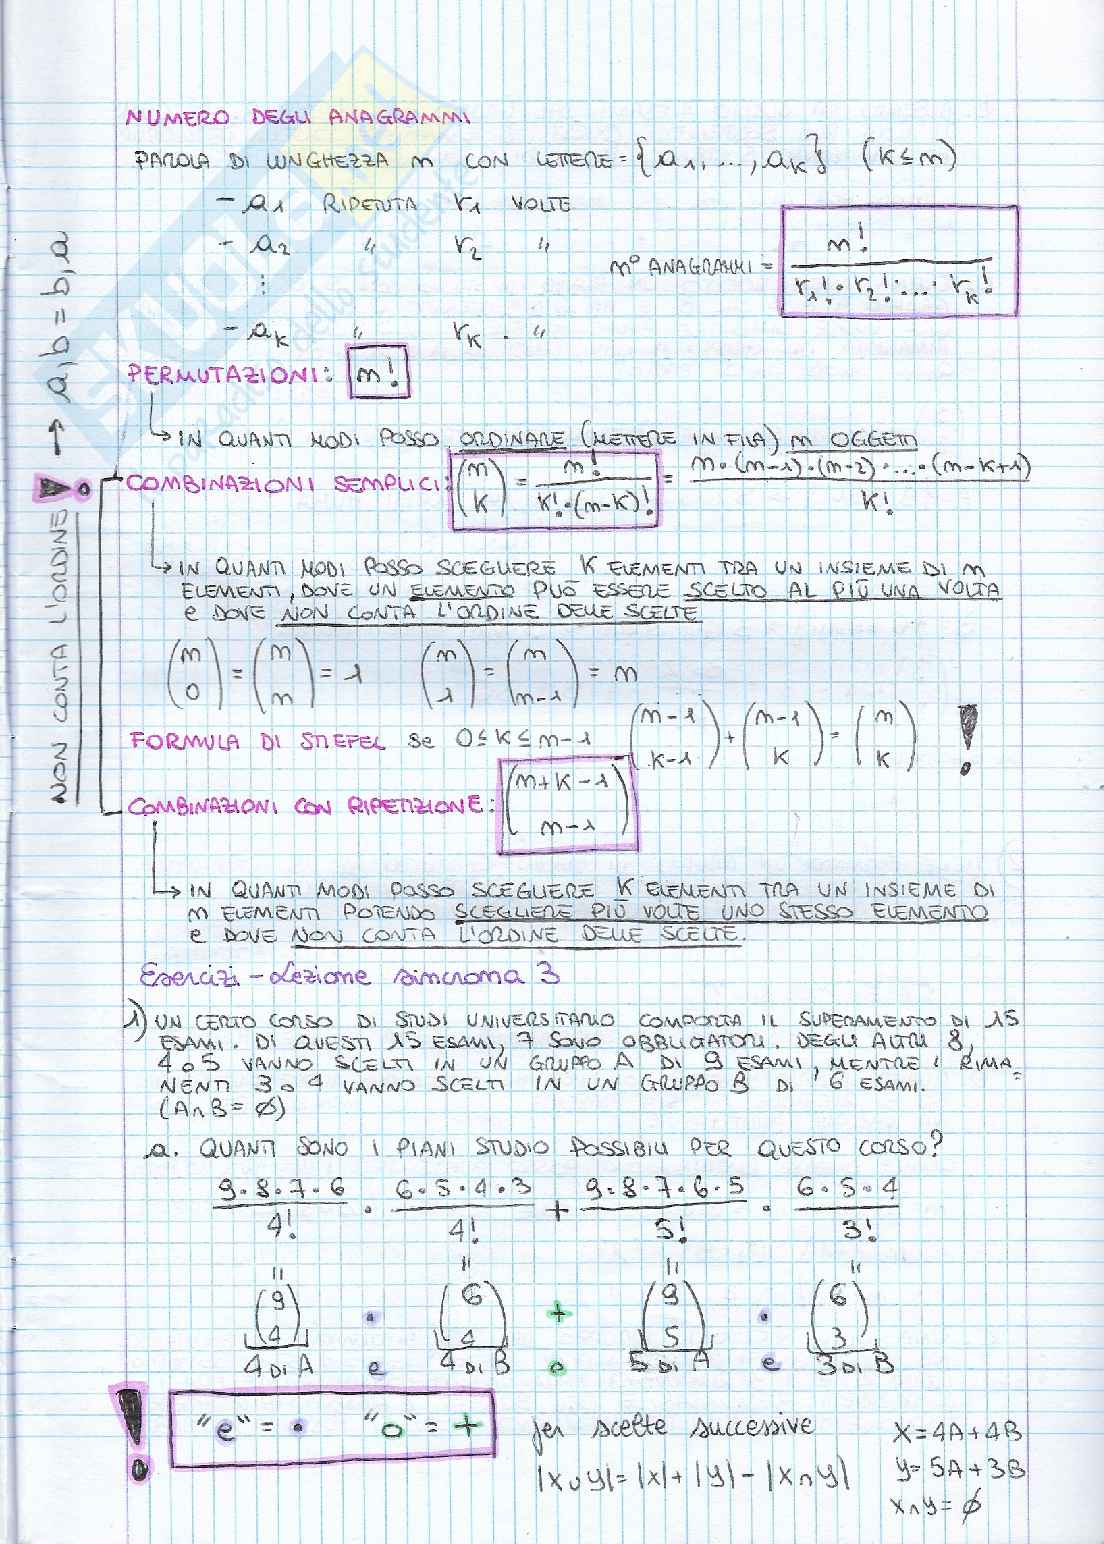 NUMERO DEGLI ANAGRAMMI
PAROLA DI LUNGHEZZA n CON LETTERE = {a1, ..., aK} (K ≤ n)
- a1 RIPETUTA r1 VOLTE
- a2 " r2 "
⋮
n° ANAGRAMMI = n! / (r1! · r2! · ... · rK!)
- aK " rK . "
PERMUTAZIONI: n!
↳ IN QUANTI MODI POSSO ORDINARE (METTERE IN FILA) n OGGETTI
NON CONTA L'ORDINE! → a,b = b,a
COMBINAZIONI SEMPLICI: (n K) = n! / (K! · (n-K)!) = n · (n-1) · (n-2) · ... · (n-K+1) / K!
↳ IN QUANTI MODI POSSO SCEGLIERE K ELEMENTI TRA UN INSIEME DI n
ELEMENTI, DOVE UN ELEMENTO PUÒ ESSERE SCELTO AL PIÙ UNA VOLTA
e DOVE NON CONTA L'ORDINE DELLE SCELTE
(n 0) = (n n) = 1 (n 1) = (n n-1) = n
FORMULA DI STIEFEL se 0 ≤ K ≤ n-1 (n-1 K-1) + (n-1 K) = (n K) !
COMBINAZIONI CON RIPETIZIONE: (n+K-1 n-1)
↳ IN QUANTI MODI POSSO SCEGLIERE K ELEMENTI TRA UN INSIEME DI
n ELEMENTI POTENDO SCEGLIERE PIÙ VOLTE UNO STESSO ELEMENTO
e DOVE NON CONTA L'ORDINE DELLE SCELTE.
Esercizi - Lezione sincrona 3
1) UN CERTO CORSO DI STUDI UNIVERSITARIO COMPORTA IL SUPERAMENTO DI 15
ESAMI. DI QUESTI 15 ESAMI, 7 SONO OBBLIGATORI. DEGLI ALTRI 8,
4 o 5 VANNO SCELTI IN UN GRUPPO A DI 9 ESAMI, MENTRE I RIMA=
NENTI 3 o 4 VANNO SCELTI IN UN GRUPPO B DI 6 ESAMI.
(A∩B = ∅)
a. QUANTI SONO I PIANI STUDIO POSSIBILI PER QUESTO CORSO?
9·8·7·6 / 4! · 6·5·4·3 / 4! + 9·8·7·6·5 / 5! · 6·5·4 / 3!
= = = =
(9 4) · (6 4) + (9 5) · (6 3)
4 DI A e 4 DI B o 5 DI A e 3 DI B
! "e" = · "o" = + per scelte successive X = 4A + 4B
|X∪Y| = |X| + |Y| - |X∩Y| Y = 5A + 3B
X∩Y = ∅
SKUOLA.net